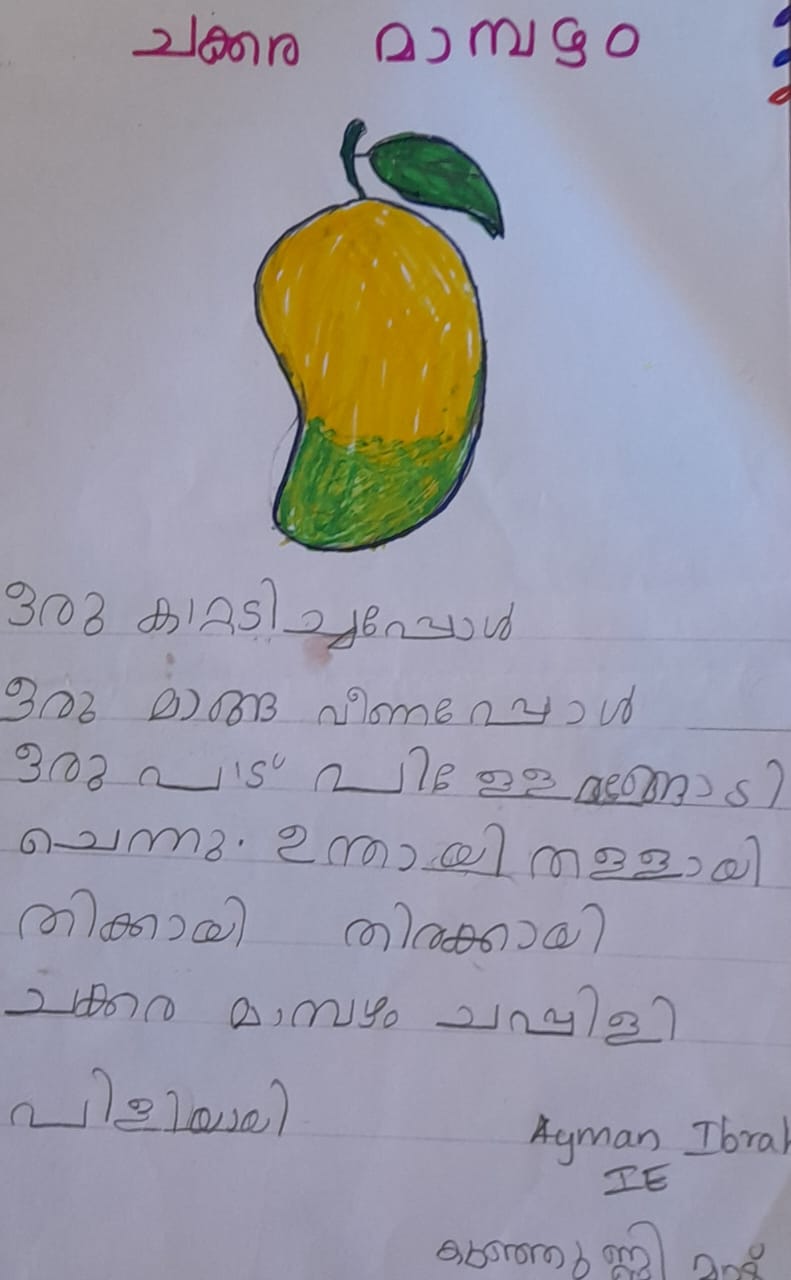 ചക്കര മാമ്പഴം
ഒരു കാറ്റടിച്ചപ്പോൾ
ഒരു മാങ്ങ വീണപ്പോൾ
ഒരു പാട് പിള്ളേരങ്ങോടി
ചെന്നു. ഉന്തായി തള്ളായി
തിക്കായി തിരക്കായി
ചക്കര മാമ്പഴം ചപ്പിളി
പിളിയായി
Ayman Ibrah
IE
കുഞ്ഞുണ്ണി